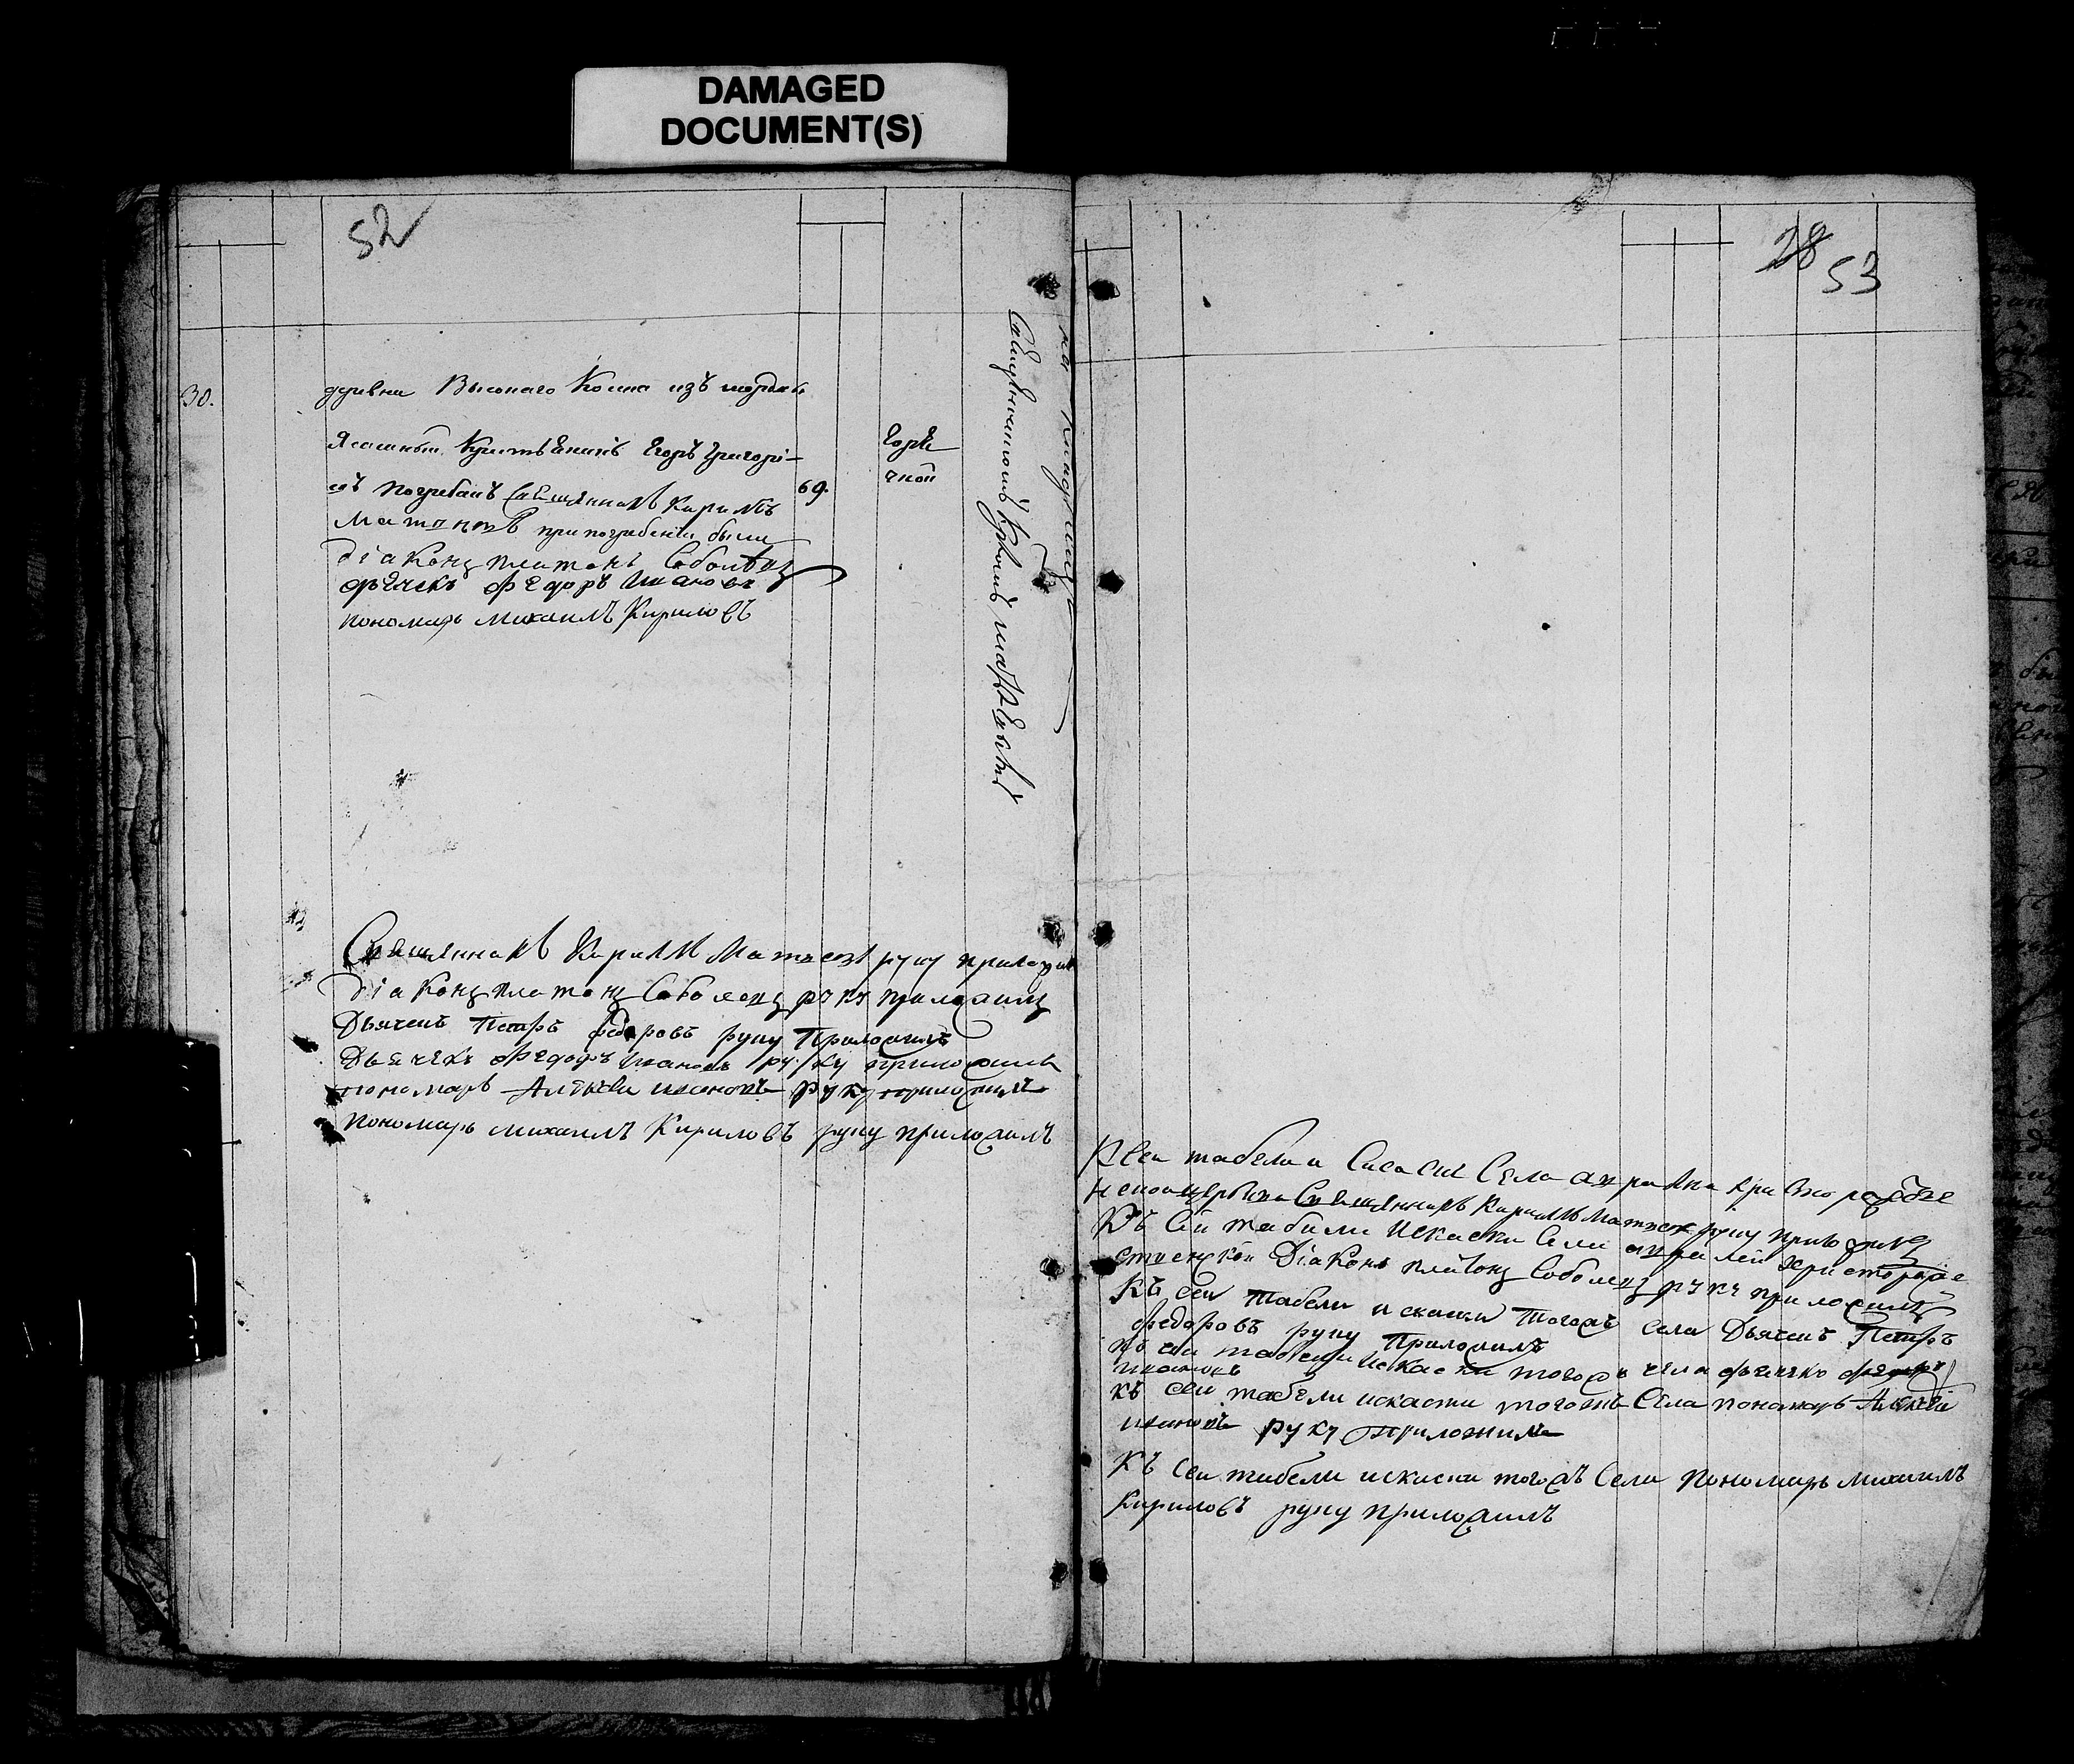 DAMAGED
DOCUMENT(S)
52
30.
деревни Высокаго Колка изъ мордвы
Ясашный Крестьенинъ Егоръ Григорь-
евъ погребанъ Священникъ Кирилъ 69. Горя
чкой
Матвеевъ при погребении были
діаконъ платонъ Соболевъ
дьечекъ Федоръ Ивановъ
пономарь михаилъ Кириловъ
на кладбище
Священникомъ
Священникъ Кирилъ Матвеевъ руку приложилъ
діаконъ платонъ Соболевъ руку приложилъ
Дьячекъ Петръ федоровъ руку Приложилъ
Дьечекъ Федоръ Ивановъ руку приложилъ
пономарь Алѣксеи ивановъ руку приложилъ
пономарь михаилъ Кириловъ руку приложилъ
28
53
К сеи табели и Села христорожде
церкви Священникъ Кирилъ Матвеевъ руку приложилъ
Къ сеи табели Села христорожде
Діаконъ платонъ Соболевъ руку приложилъ
Къ сеи табели и скаски тогожъ села Дьячекъ Петръ
федоровъ руку Приложилъ
къ сеи табели искаски тогожъ села дьечекъ Федоръ
ивановъ
къ сеи табели искаски тогожъ Села пономарь Алѣксеи
ивановъ руку приложилъ
къ сеи табели искаски тогожъ Села пономарь михаилъ
Кириловъ руку приложилъ